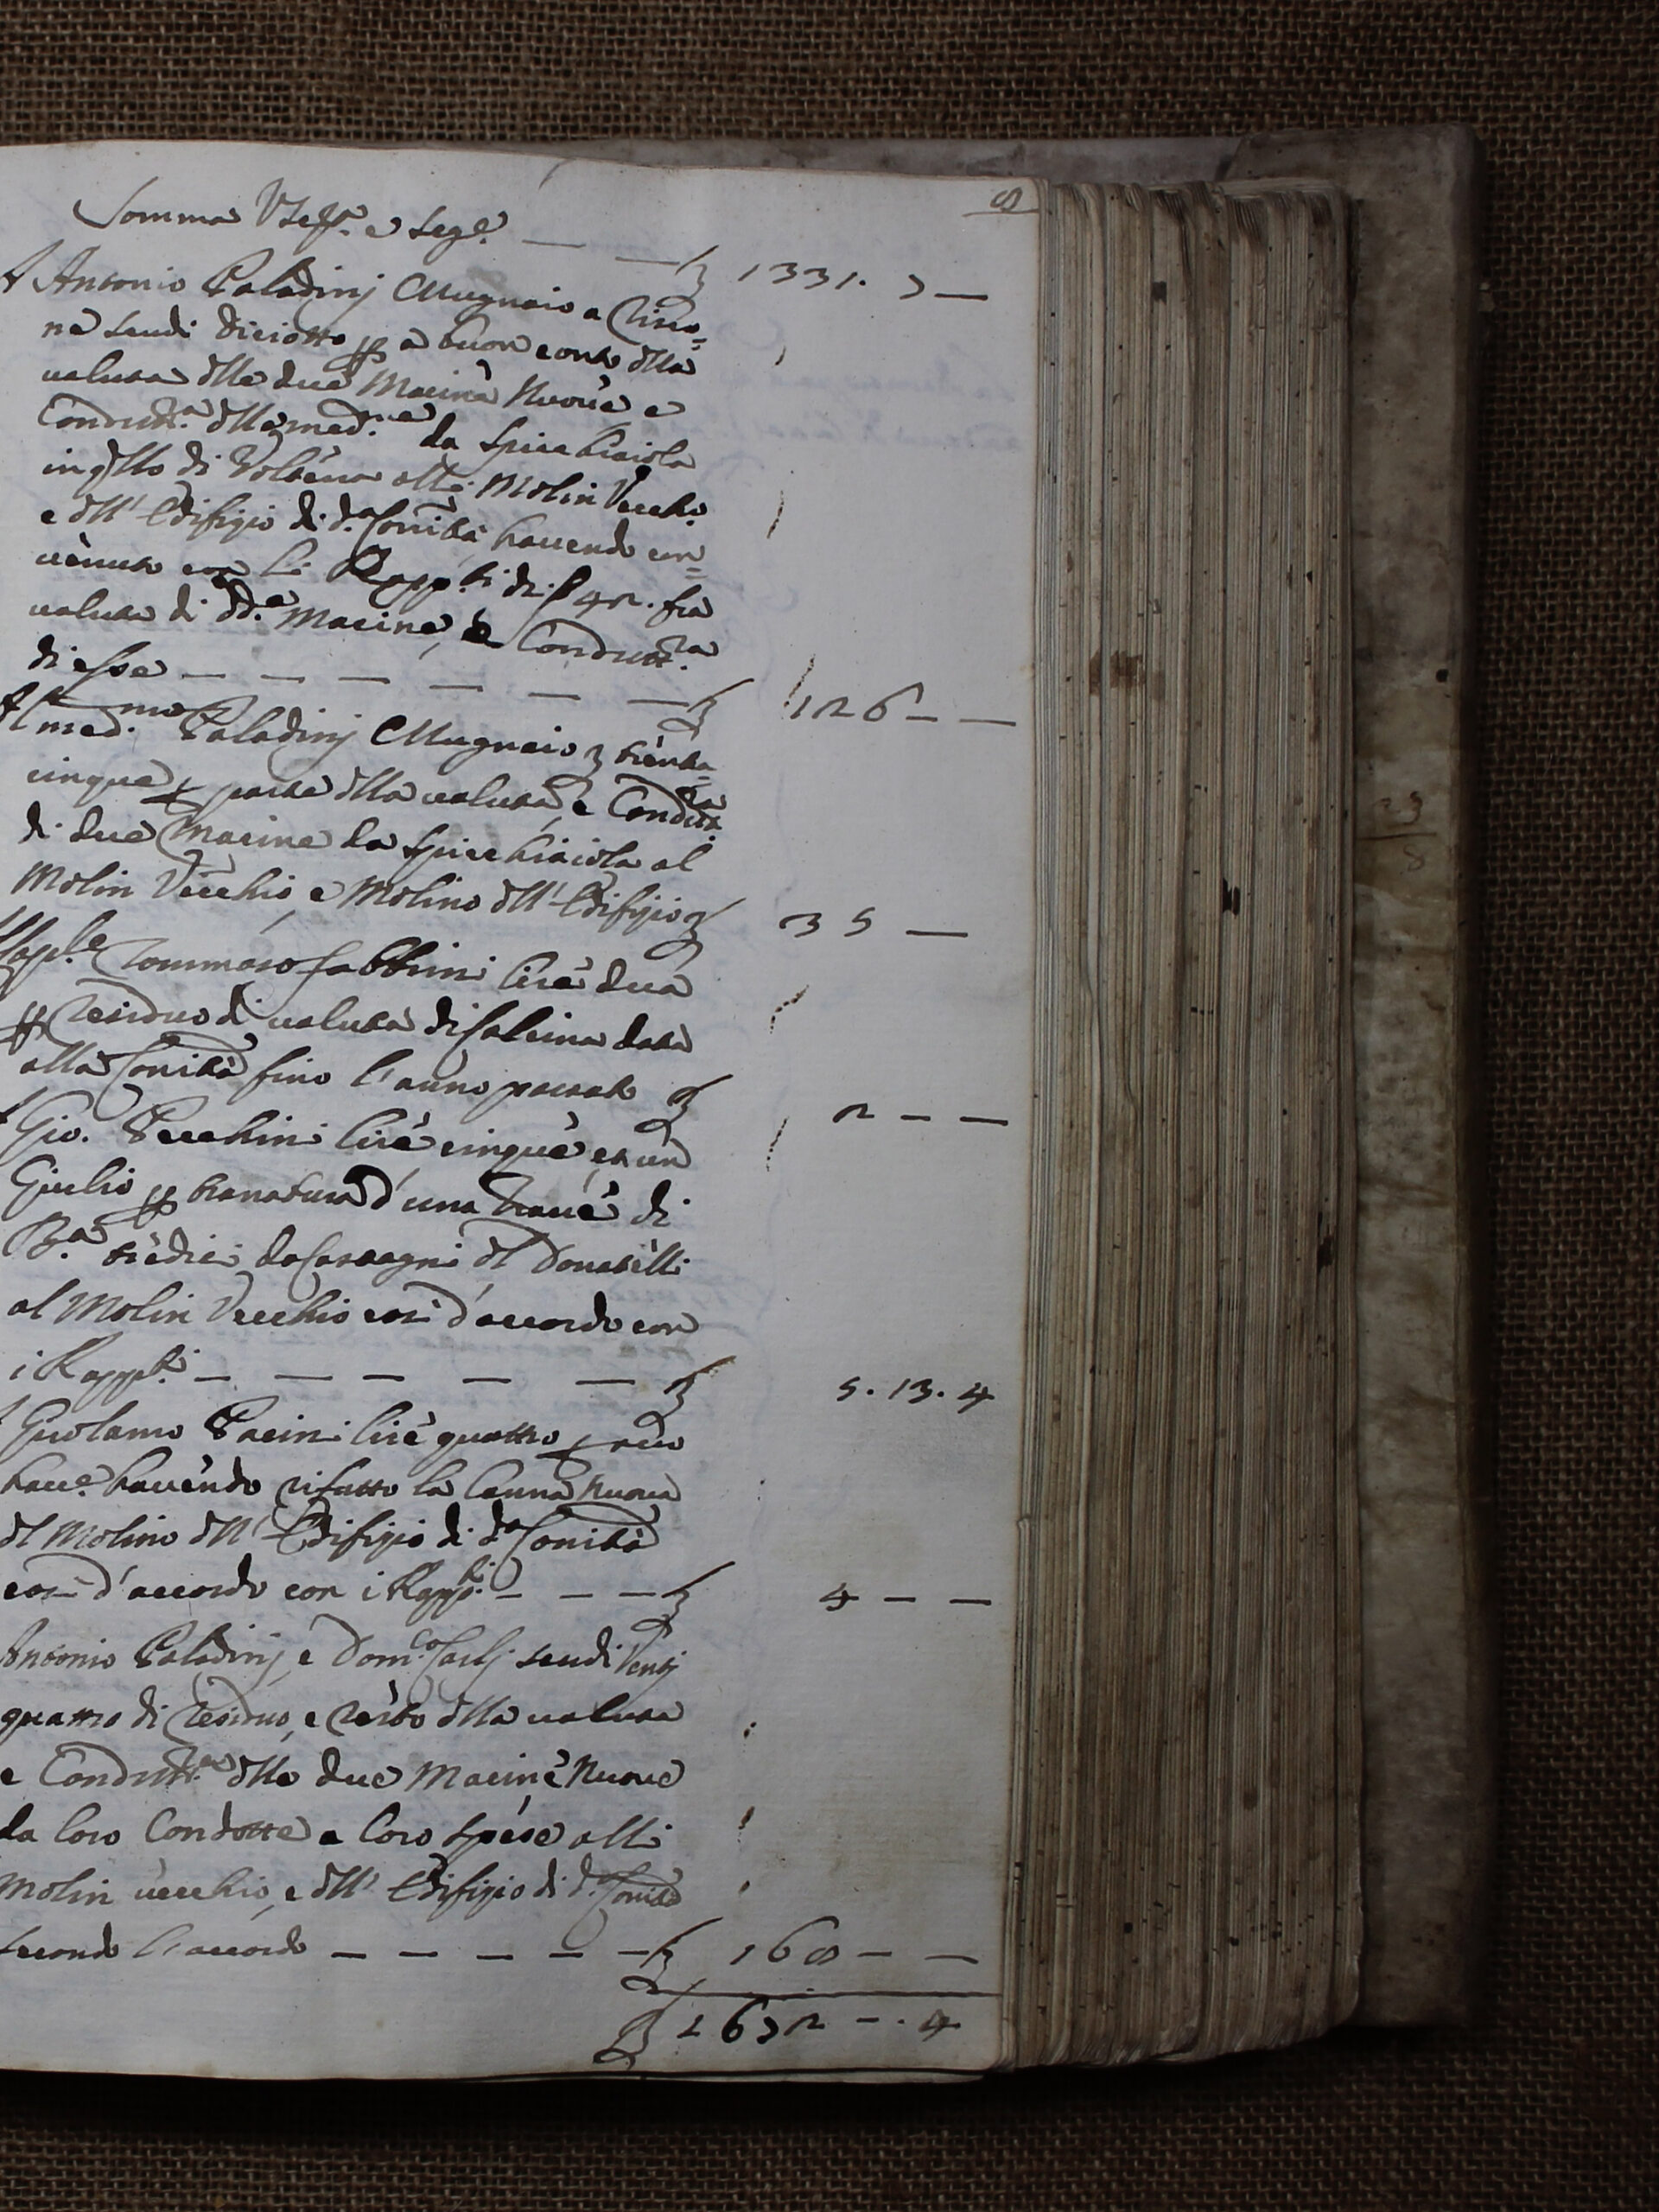 8
Somma Usc.ta e Seg.e — — £ 1331. 7 —
A Antonio Paladinj Mugnaio a Riso=
ne scudi diciotto p a buon conto dlla
valuta dlle due Macine Nuove e
Condutt.a dlle med.me da Spicchiaiola
in qllo di Volterra alli Molin Vecch.o
e dll'Edifizio di d.a Comità havendo con=
venuto con li Rapp.ti di S 42. fra
valuta di dd.e Macine, e Condutt.ra
di esse — — — — — — £ 126 — —
Al med.mo Paladinj Mugnaio £ trenta=
cinque p parte dlla valuta, e Cond.tta
di due Macine da Spicchiaiola al
Molin Vecchio e Molino dll'Edifizio £ 35 —
Tommaso Fabbrini lire dua
p residuo di valuta di Calcina data
alla Comità fino l'anno passato £ 2 — —
Gio. Pecchini lire cinque, et un
Giulio p tranatura d'una trave di
B.a tredici da Castagni dl Donatelli
al Molin Vecchio così d'accordo con
i Rapp.ti — — — — — £ 5. 13. 4
Girolamo Pacini lire quattro p
have. havendo rifatto la Canna nuova
dl Molino dll'Edifizio di d.a Comità
così d'accordo con i Rapp.ti — — — £ 4 — —
Antonio Paladinj, e Dom.co Carlj scudi Ventj
quattro di residuo, e resto dlla valuta
e Condutt.a dlle due Macine Nuove
da loro Condotte a loro spese alli
Molin vecchio, e dll' Edifizio di d.a Comità
secondo l'accordo — — — — — £ 168 — —
£ 1672 — . 4